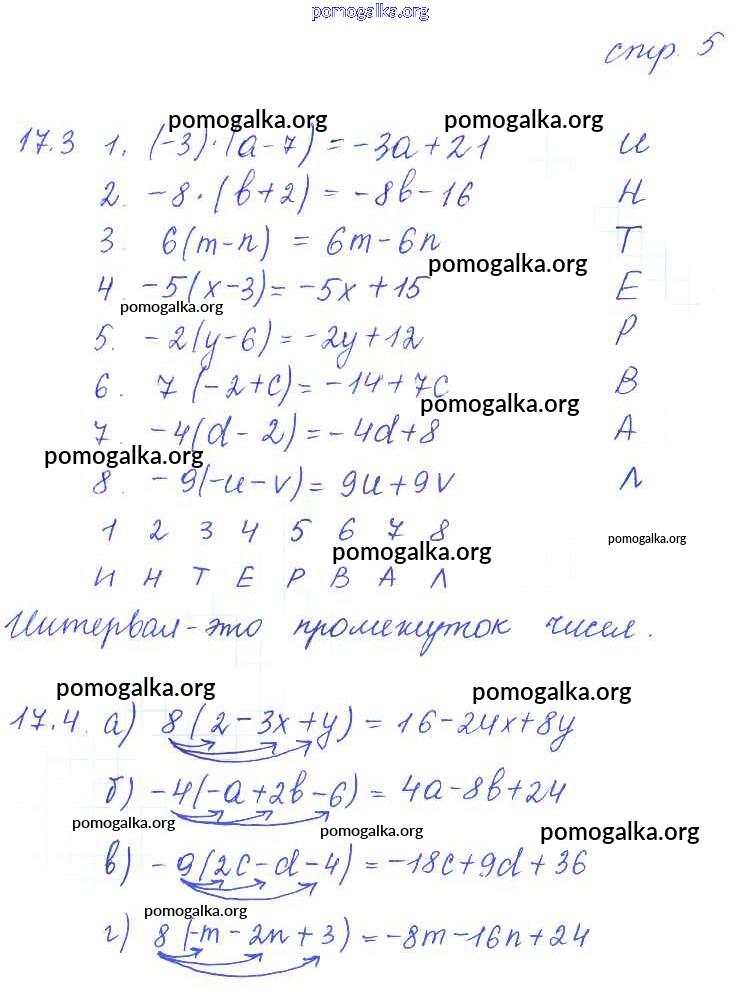 pomogalka.org
стр. 5
pomogalka.org pomogalka.org
17.3 1. (-3)·(a-7) = -3a+21 И
2. -8·(b+2) = -8b-16 Н
3. 6(m-n) = 6m-6n Т
pomogalka.org
4. -5(x-3)= -5x+15 Е
pomogalka.org
5. -2(y-6)=-2y+12 Р
6. 7(-2+c)=-14+7c В
pomogalka.org
7. -4(d-2)=-4d+8 А
pomogalka.org
8. -9(-u-v)= 9u+9v Л
1 2 3 4 5 6 7 8
pomogalka.org pomogalka.org
И Н Т Е Р В А Л
Интервал-это промежуток чисел.
pomogalka.org pomogalka.org
17.4. а) 8(2-3x+y)=16-24x+8y
б) -4(-a+2b-6)= 4a-8b+24
pomogalka.org pomogalka.org pomogalka.org
в) -9(2c-d-4)=-18c+9d+36
pomogalka.org
г) 8(-m-2n+3)=-8m-16n+24